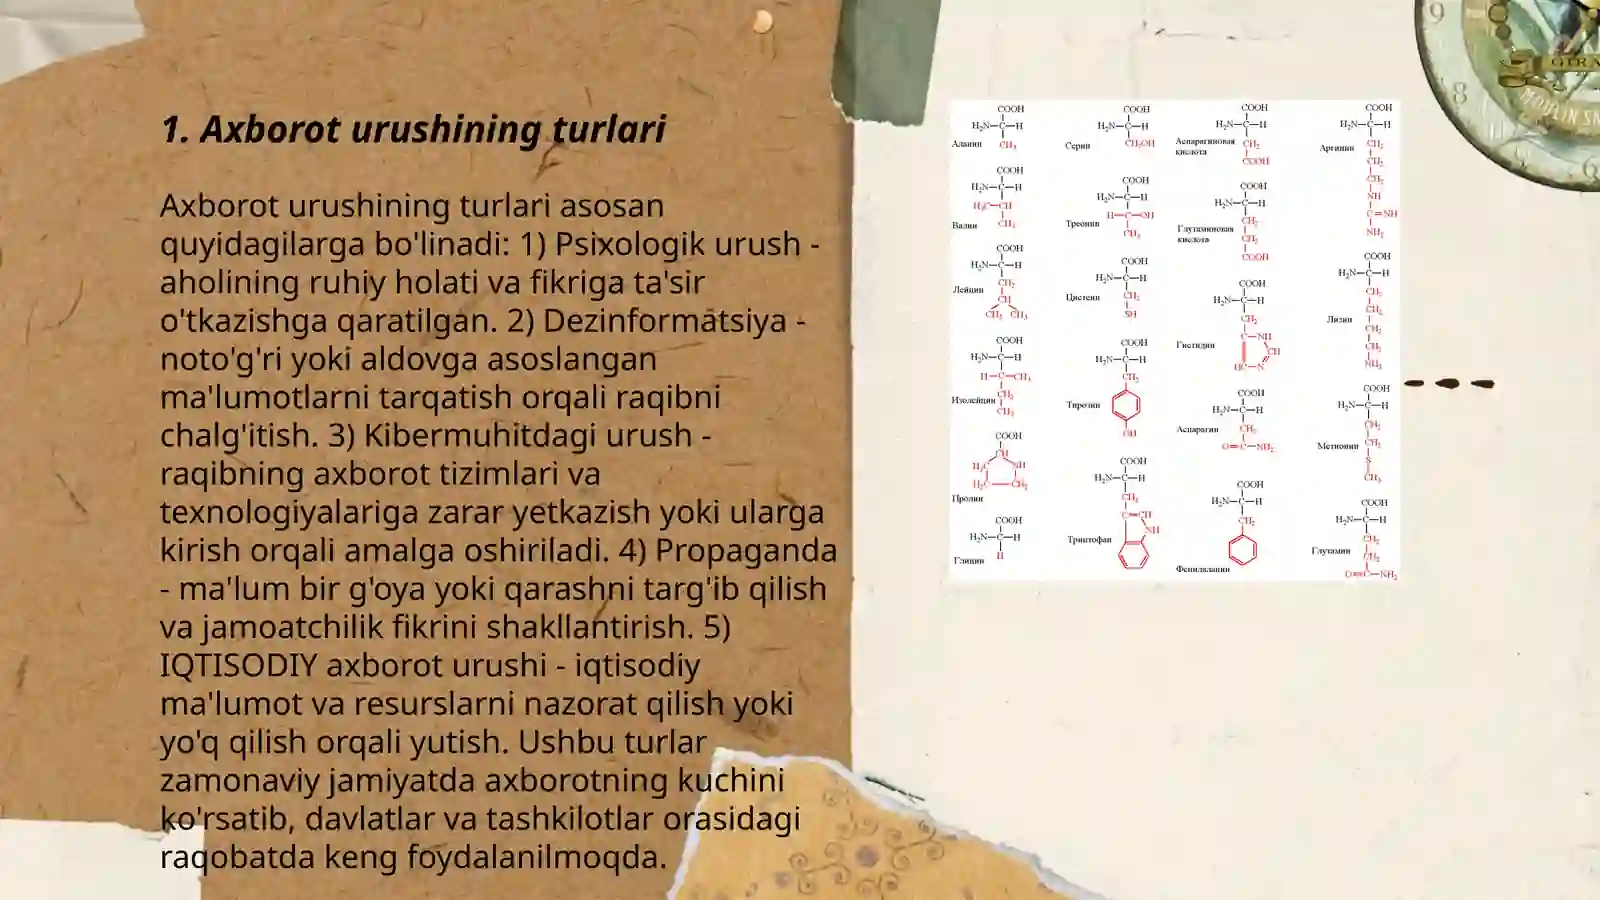 1. Axborot urushining turlari
Axborot urushining turlari asosan
quyidagilarga bo'linadi: 1) Psixologik urush -
aholining ruhiy holati va fikriga ta'sir
o'tkazishga qaratilgan. 2) Dezinformatsiya -
noto'g'ri yoki aldovga asoslangan
ma'lumotlarni tarqatish orqali raqibni
chalg'itish. 3) Kibermuhitdagi urush -
raqibning axborot tizimlari va
texnologiyalariga zarar yetkazish yoki ularga
kirish orqali amalga oshiriladi. 4) Propaganda
- ma'lum bir g'oya yoki qarashni targ'ib qilish
va jamoatchilik fikrini shakllantirish. 5)
IQTISODIY axborot urushi - iqtisodiy
ma'lumot va resurslarni nazorat qilish yoki
yo'q qilish orqali yutish. Ushbu turlar
zamonaviy jamiyatda axborotning kuchini
ko'rsatib, davlatlar va tashkilotlar orasidagi
raqobatda keng foydalanilmoqda.
Аланин
Валин
Лейцин
Изолейцин
Пролин
Глицин
Серин
Треонин
Цистеин
Тирозин
Триптофан
Аспарагиновая
кислота
Глутаминовая
кислота
Гистидин
Аспарагин
Фенилаланин
Аргинин
Лизин
Метионин
Глутамин
9
8
MOULIN